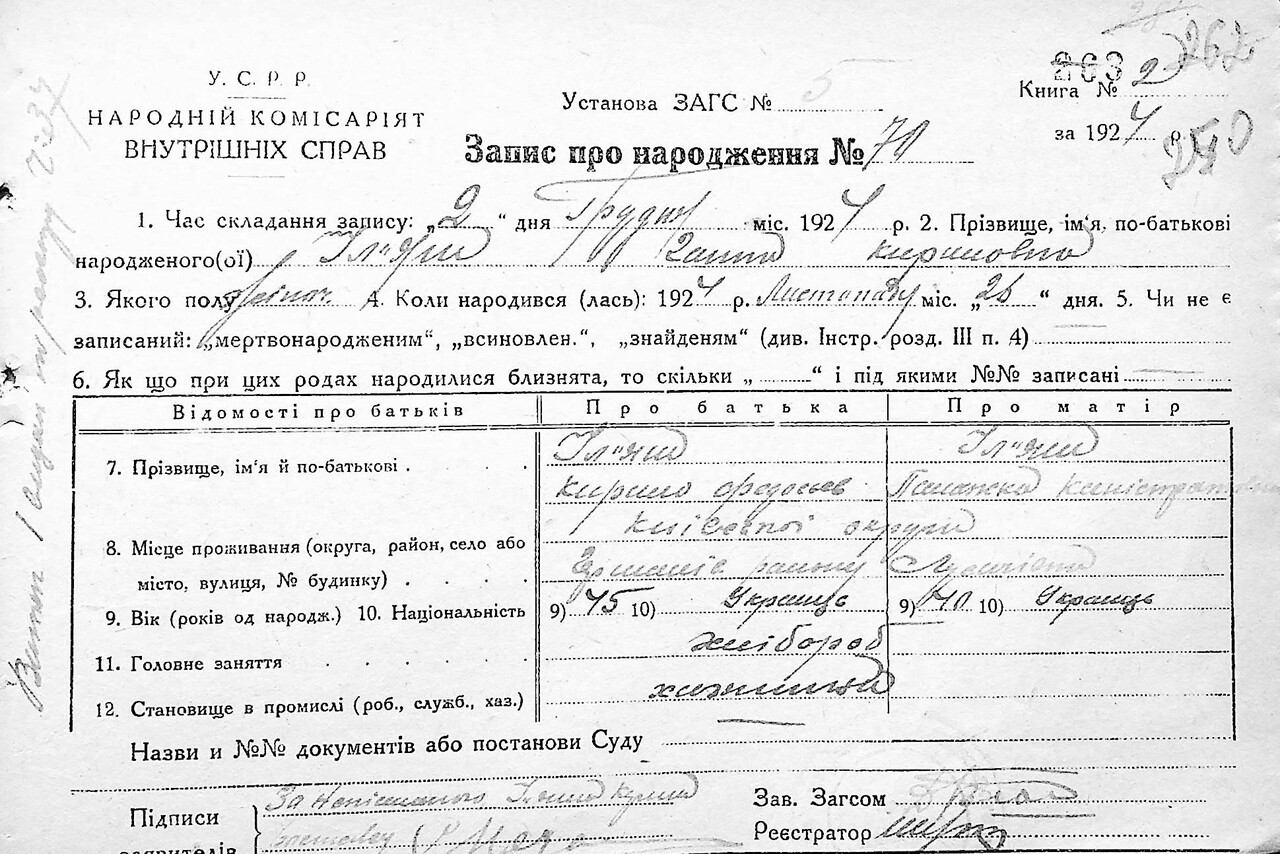 262
263
У. С. Р. Р.
НАРОДНІЙ КОМІСАРІЯТ
ВНУТРІШНІХ СПРАВ
Установа ЗАГС № 5
Книга № 2
за 1924 р.
250
Запис про народження № 70
1. Час складання запису: „2“ дня Грудня міс. 1924 р. 2. Прізвище, ім‘я, по-батькові
народженого(ої) Іл"яш Ганна Кириловна
3. Якого полу жіноч. 4. Коли народився (лась): 1924 р. Листопаду міс. „28“ дня. 5. Чи не є
записаний: „мертвонародженим“, „всиновлен.“, „знайденям“ (див. Інстр. розд. III п. 4)
6. Як що при цих родах народилися близнята, то скільки „ “ і під якими №№ записані
Відомості про батьків Про батька Про матір
7. Прізвище, ім‘я й по-батькові Іл"яш Іл"яш
Кирило Федосьев Палажка
Київської округи
8. Місце проживання (округа, район, село або
місто, вулиця, № будинку) району
9. Вік (років од народж.) 10. Національність 9) 45 10) Українць 9) 40 10) Українць
11. Головне заняття хлібороб
12. Становище в промислі (роб., служб., хаз.) хазяин
Назви и №№ документів або постанови Суду
Підписи
заявителів
За неписьменого
Зав. Загсом
Реєстратор